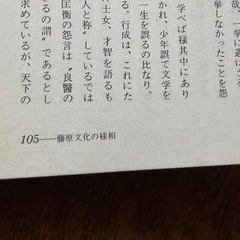 哉、挙に遇
挙しなかったことを怨
学べば禄其中にあり
かれ、少年誤て文学を
一生を誤るの比なり。
る。行成は、これにた
士女、才智を語るも
人と称〟しているでは
匡衡の怨言は〝良医の
るの謂〟であるとし
求めているが、天下の
105――藤原文化の様相